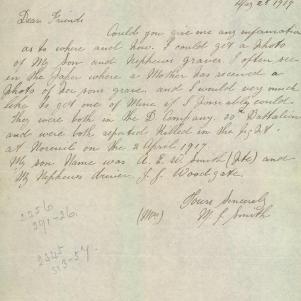 Apr 28 1919
Dear Friends
Could you give me any information
as to where and how I could get a photo
of My son and Nephews graves I often see
in the paper where a Mother has received a
photo of her sons grave and I would very much
like to get one of Mine if I possibly could.
They were both in the D Company. 50th Battalion
and were both reported killed in the fight
at Noreuil on the 2 April 1917
My son Name was A. E. W. Smith (Pte) and
My Nephews J. J. Woodgate.
Yours Sincerely
(Mrs) M J Smith
2256
291-26.
2345
313-57